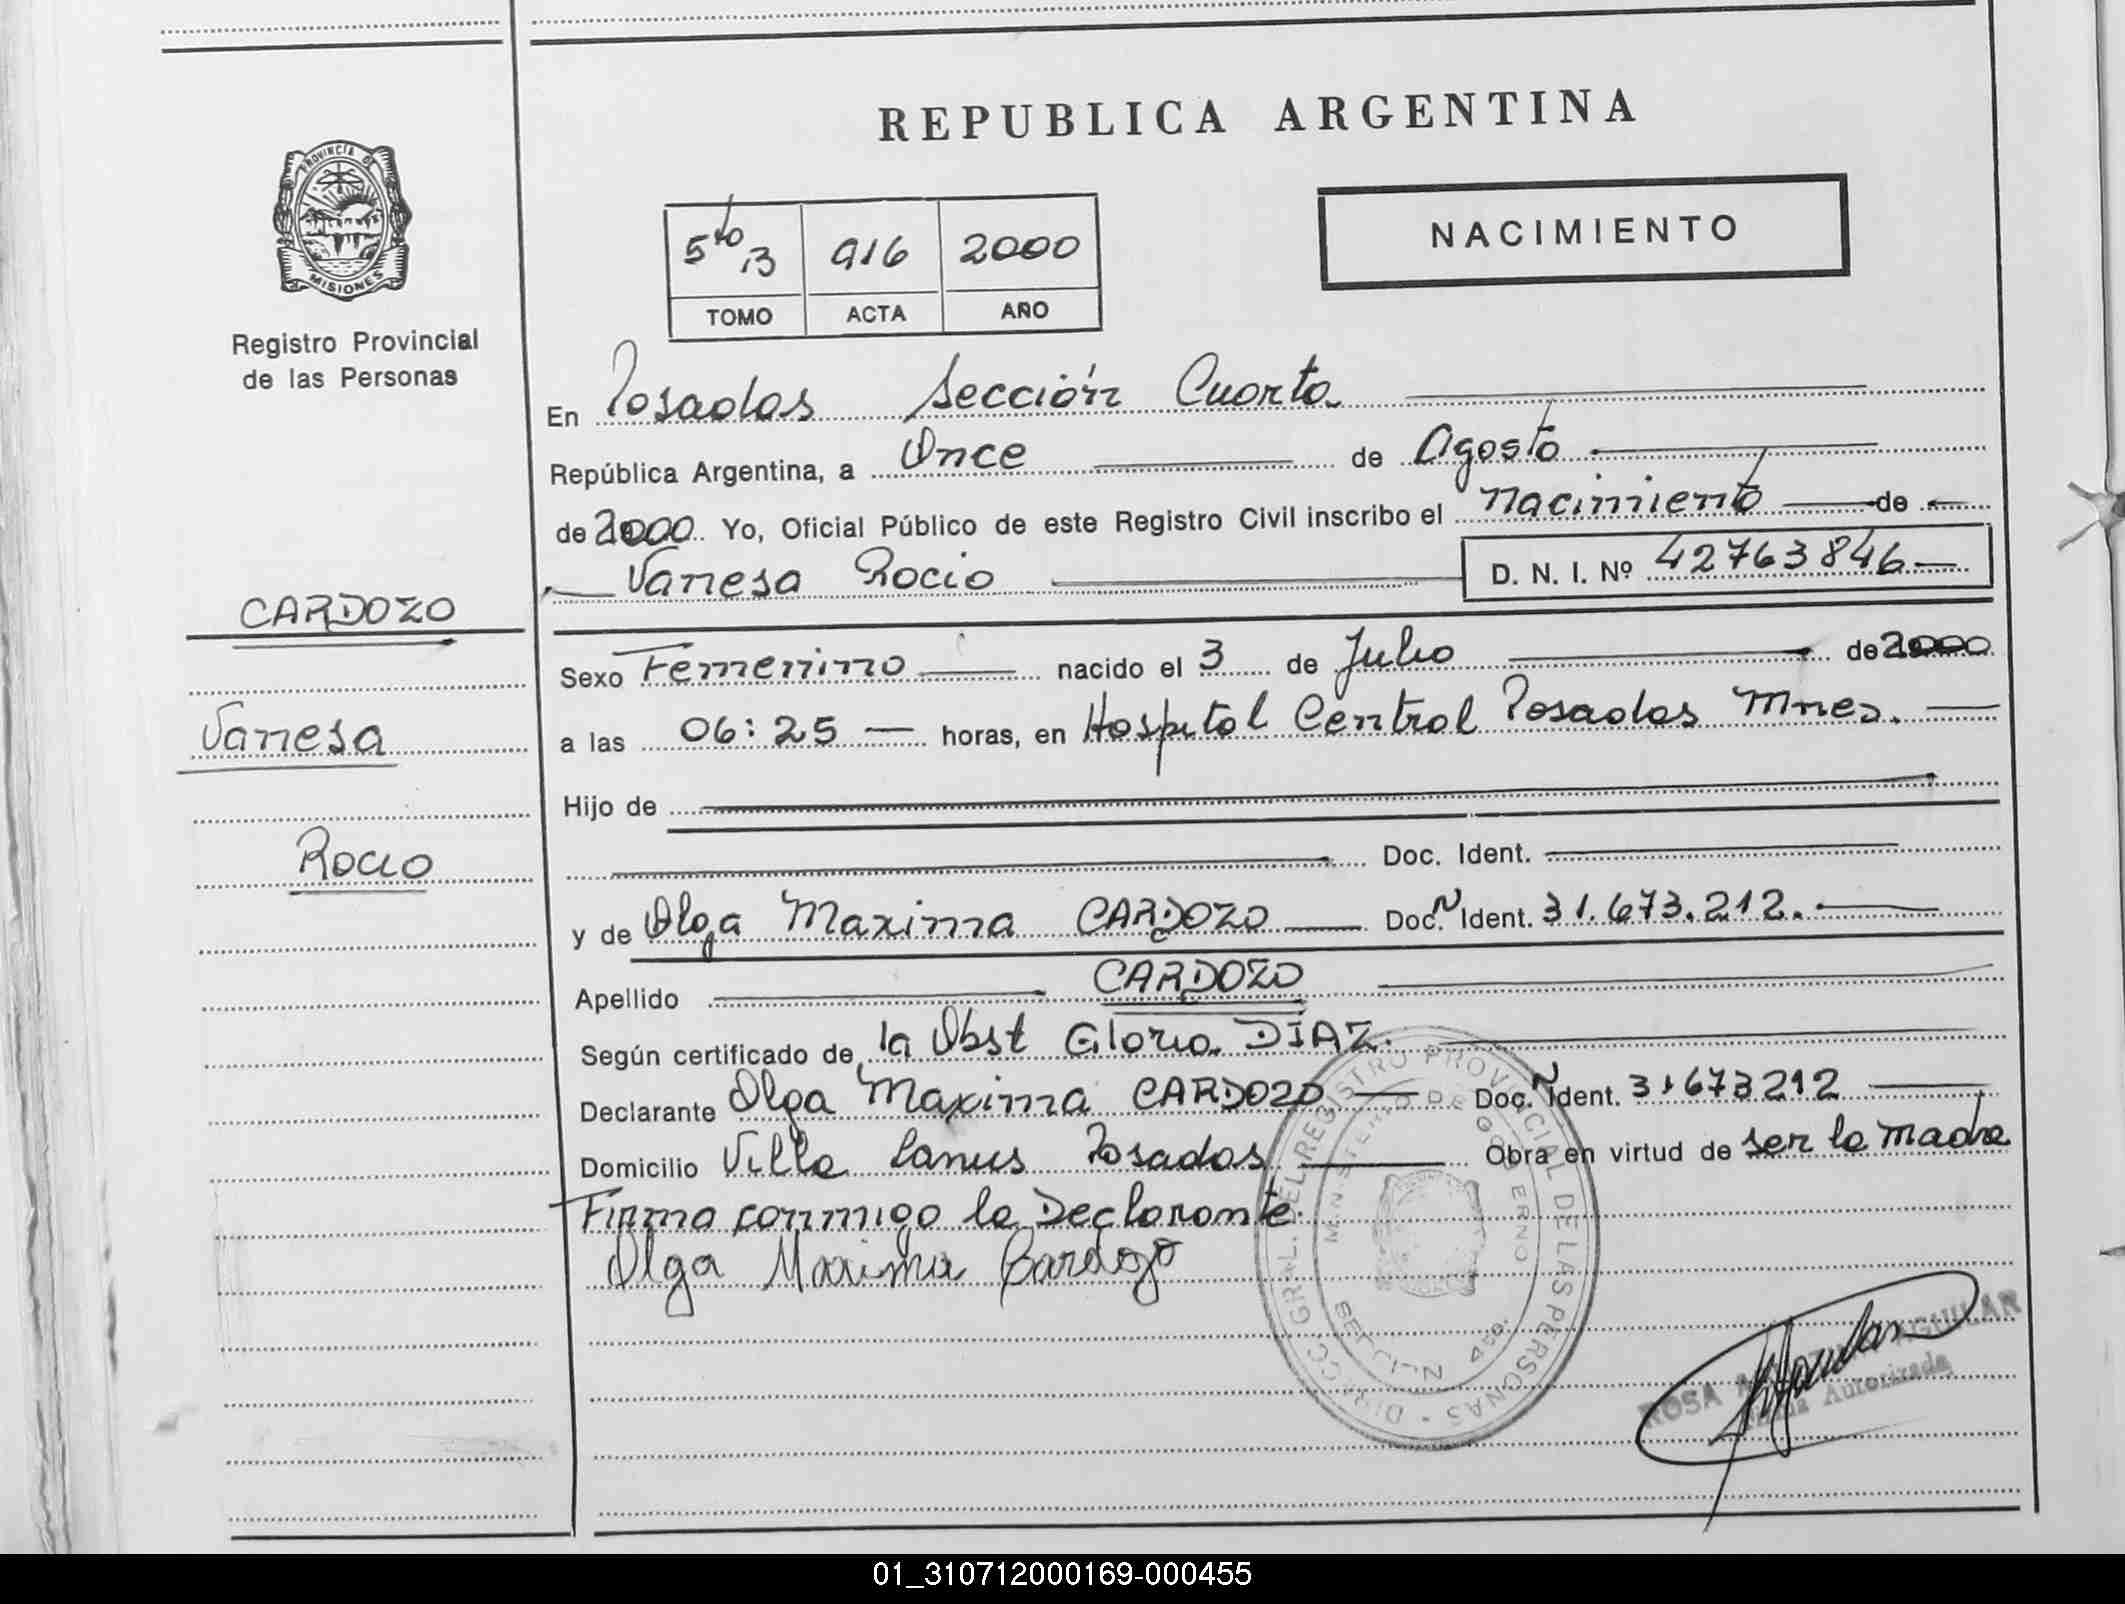 REPUBLICA ARGENTINA
NACIMIENTO
PROVINCIA DE
MISIONES
Registro Provincial
de las Personas
5to B 916 2000
TOMO ACTA AÑO
En Posadas Sección Cuarta
República Argentina, a Once de Agosto
de 2000 Yo, Oficial Público de este Registro Civil inscribo el nacimiento de
Vanesa Rocio D. N. I. Nº 42763846
CARDOZO
Vanesa
Rocio
Sexo Femenino nacido el 3 de Julio de 2000
a las 06:25 horas, en Hospital Central Posadas Mnes.
Hijo de
Doc. Ident.
y de Olga Maxima CARDOZO Doc. Ident. 31.673.212.
Apellido CARDOZO
Según certificado de la Obst Gloria DÍAZ.
Declarante Olga Maxima CARDOZO Doc. Ident. 31673212
Domicilio Villa Lanus Posadas Obra en virtud de ser la madre
Firma conmigo la Declarante.
Olga Maxima Cardozo
DIRECC. GRAL. DEL REGISTRO PROVINCIAL DE LAS PERSONAS
MINISTERIO DE GOBIERNO
SECCION 4ta.
ROSA AGUILAR
Autorizada
01_310712000169-000455